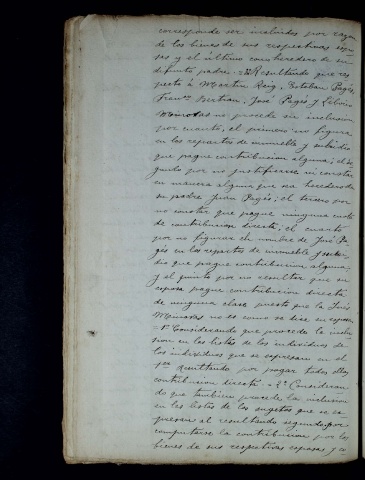 corresponde ser incluidos por razon
de los bienes de sus respectivas espo-
sas y el último como heredero de su
difunto padre. = Resultando que res-
pecto á Martin Roig, Esteban Pagés,
Franco Bertran, José Pagés y
no procede su inclusion
por cuanto, el primero no figura
en los repartos de inmueble y subsidio
que pague contribucion alguna; el se-
gundo por no justificarse ni constar
en manera alguna que sea heredero de
su padre Juan Pagés; el tercero por
no constar que pague ninguna cuota
de contribucion directa; el cuarto
por no figurar el nombre de José Pa-
gés en los repartos de inmueble y subsi-
dio que pague contribucion alguna;
y el quinto por no resultar que su
esposa pague contribucion directa
de ninguna clase puesto que la
no es como se dice su esposa
= 1º Considerando que procede la inclu-
sion en las listas de los individuos de
los individuos que se expresan en el
1er Resultando por pagar todos ellos
contribucion directa = 2º Consideran-
do que tambien procede la inclusion
en las listas de los sugetos que se es-
presan al resultando segundo por
computarse la contribucion por los
bienes de sus respectivas esposas, y